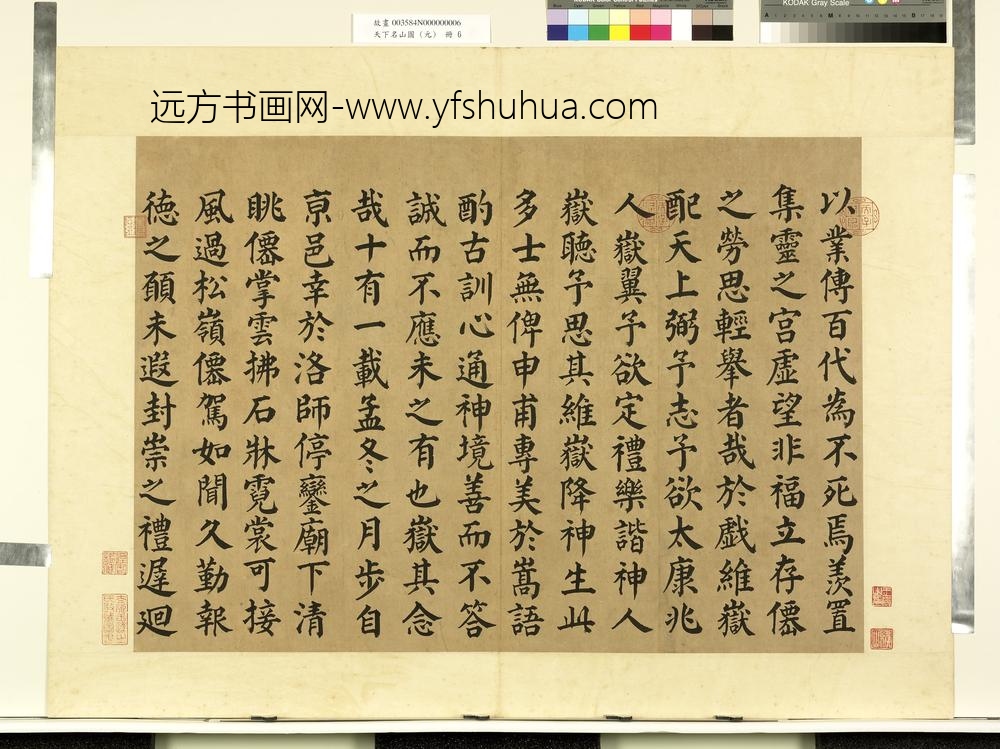 故畫 003584N000000006
天下名山圖（元） 冊 6
KODAK Gray Scale
远方书画网-www.yfshuhua.com
以業傳百代為不死焉羨置
集靈之宮虛望非福立存僊
之勞思輕舉者哉於戲維嶽
配天上弼予志予欲太康兆
人嶽翼予欲定禮樂諧神人
嶽聽予思其維嶽降神生此
多士無俾申甫專美於嵩語
酌古訓心通神境善而不答
誠而不應未之有也嶽其念
哉十有一載孟冬之月步自
亰邑幸於洛師停鑾廟下清
眺僊掌雲拂石牀霓裳可接
風過松嶺僊駕如聞久勤報
徳之願未遐封崇之禮遲迴